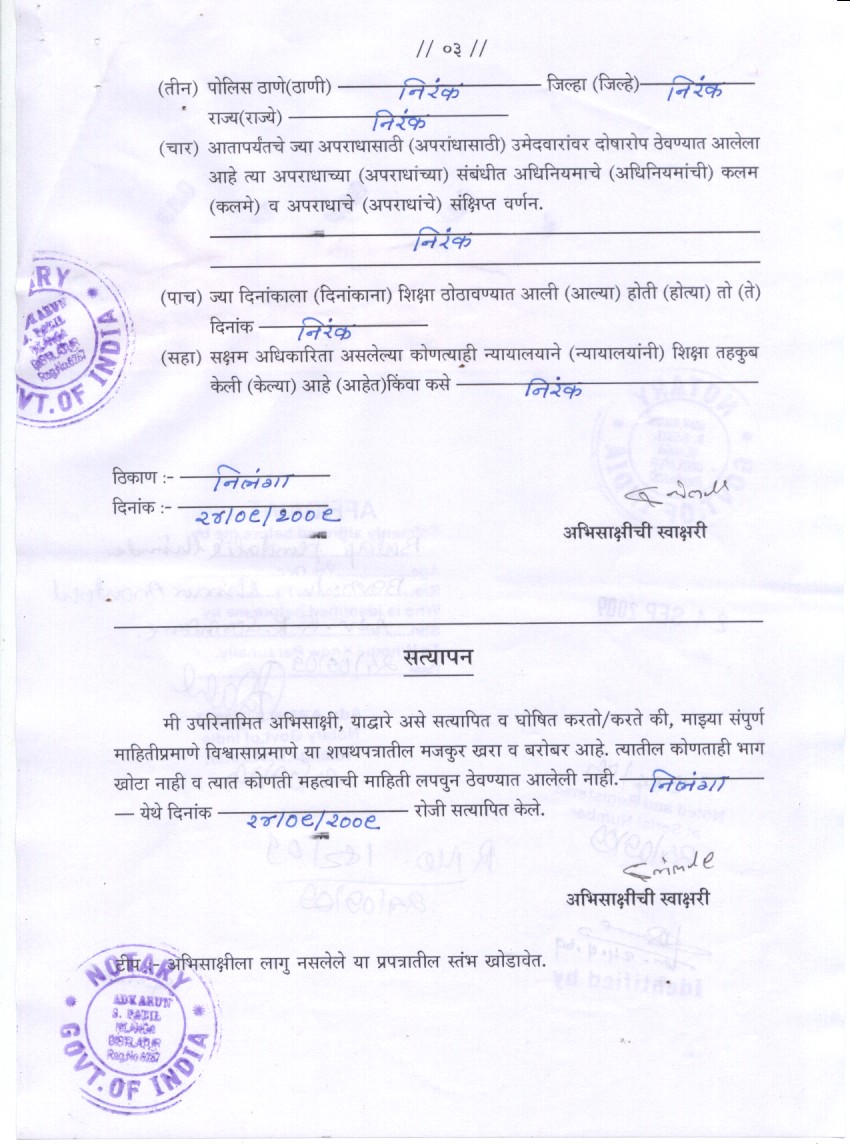 // ०३ //
(तीन) पोलिस ठाणे(ठाणी) निरंक जिल्हा (जिल्हे) निरंक
राज्य(राज्ये) निरंक
(चार) आतापर्यंतचे ज्या अपराधासाठी (अपरांधासाठी) उमेदवारांवर दोषारोप ठेवण्यात आलेला
आहे त्या अपराधाच्या (अपराधांच्या) संबंधीत अधिनियमाचे (अधिनियमांची) कलम
(कलमे) व अपराधाचे (अपराधांचे) संक्षिप्त वर्णन.
निरंक
(पाच) ज्या दिनांकाला (दिनांकाना) शिक्षा ठोठावण्यात आली (आल्या) होती (होत्या) तो (ते)
दिनांक निरंक
(सहा) सक्षम अधिकारिता असलेल्या कोणत्याही न्यायालयाने (न्यायालयांनी) शिक्षा तहकुब
केली (केल्या) आहे (आहेत)किंवा कसे निरंक
NOTARY
GOVT. OF INDIA
ठिकाण :- निलंगा
दिनांक :- २४/०९/२००९
अभिसाक्षीची स्वाक्षरी
सत्यापन
मी उपरिनामित अभिसाक्षी, याद्वारे असे सत्यापित व घोषित करतो/करते की, माझ्या संपुर्ण
माहितीप्रमाणे विश्वासाप्रमाणे या शपथपत्रातील मजकुर खरा व बरोबर आहे. त्यातील कोणताही भाग
खोटा नाही व त्यात कोणती महत्वाची माहिती लपवुन ठेवण्यात आलेली नाही. निलंगा
— येथे दिनांक २४/०९/२००९ रोजी सत्यापित केले.
अभिसाक्षीची स्वाक्षरी
टीप :- अभिसाक्षीला लागु नसलेले या प्रपत्रातील स्तंभ खोडावेत.
NOTARY
ADK ARUN
S. PATIL
NILANGA
DIST LATUR
Reg.No.6767
GOVT. OF INDIA